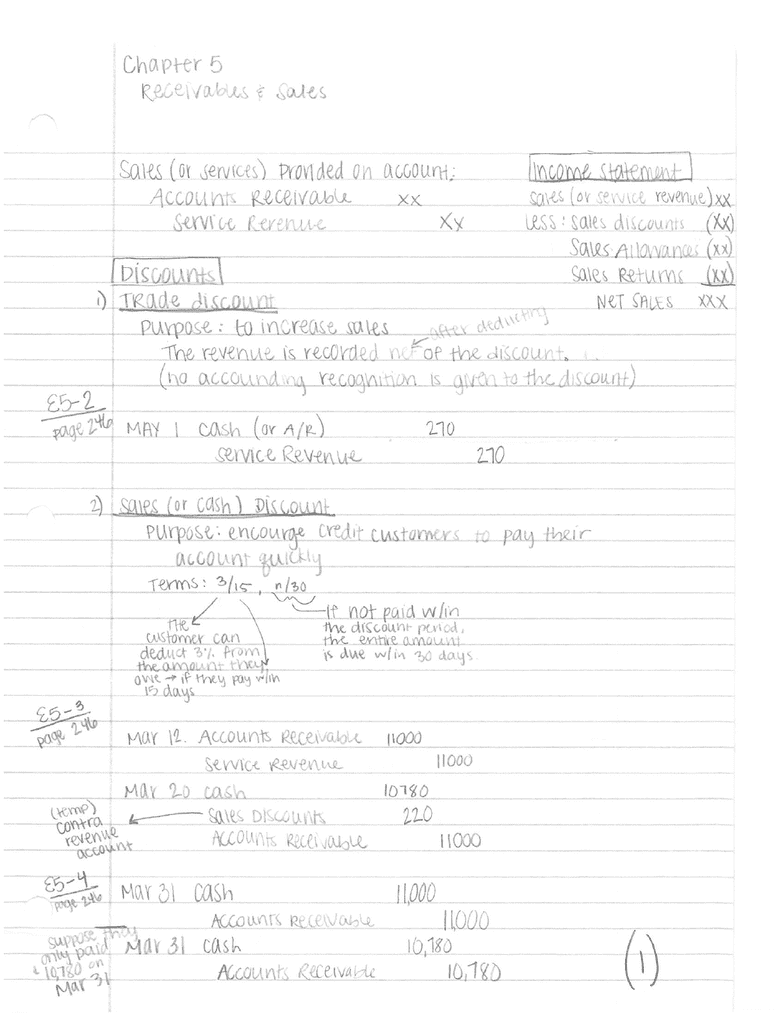 Chapter 5
Receivables & Sales
Sales (or services) provided on account:
Accounts Receivable xx
Service Revenue xx
Income statement
sales (or service revenue) xx
less: sales discounts (xx)
Sales Allowances (xx)
Sales Returns (xx)
NET SALES xxx
Discounts
1) Trade discount
Purpose: to increase sales
after deducting
The revenue is recorded net of the discount.
(no accounding recognition is given to the discount)
E5-2
page 246
MAY 1 cash (or A/R) 270
Service Revenue 270
2) Sales (or cash) Discount
Purpose: encourge credit customers to pay their
account quickly
Terms: 3/15, n/30
The
customer can
deduct 3% from
the amount they
owe → if they pay w/in
15 days
If not paid w/in
the discount period,
the entire amount
is due w/in 30 days.
E5-3
page 246
Mar 12. Accounts Receivable 11000
Service Revenue 11000
Mar 20 cash 10780
Sales Discounts 220
Accounts Receivable 11000
(temp)
contra
revenue
account
E5-4
page 246
Mar 31 cash 11,000
Accounts Receivable 11,000
suppose they
only paid
10,780 on
Mar 31
Mar 31 cash 10,780
Accounts Receivable 10,780
(1)